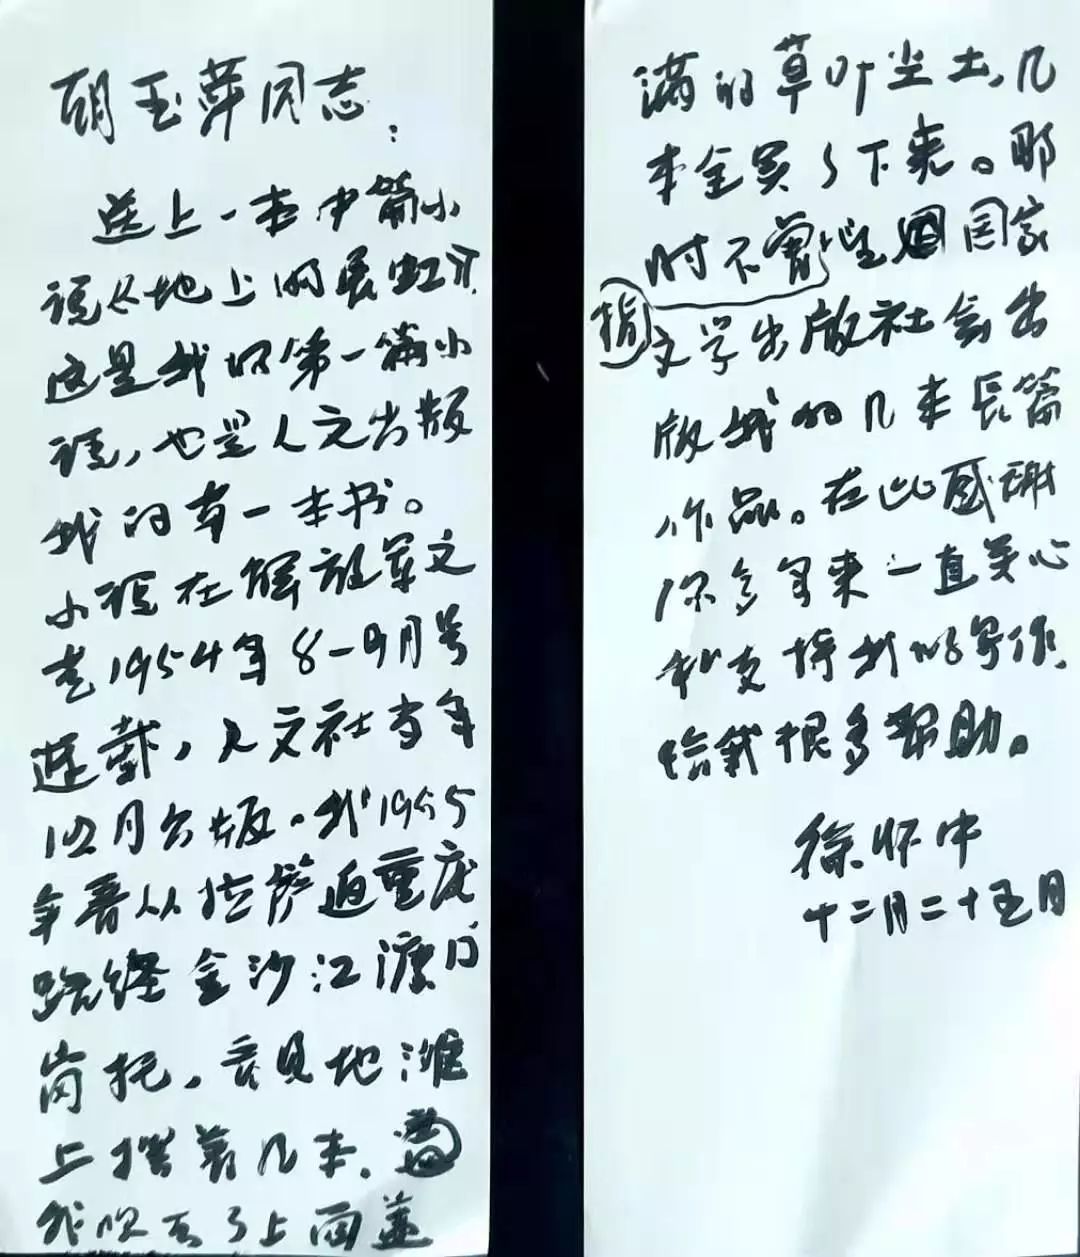 胡玉萍同志：
送上一本中篇小
说《地上的长虹》，
这是我的第一篇小
说，也是人文出版
我的第一本书。
小说在解放军文
艺1954年8-9月号
连载，人文社当年
12月出版。我1955
年春从拉萨返重庆
路经金沙江渡口
岗托，意见地摊
上摆着几本，
我吹去了上面盖
满的草叶尘土，几
本全买了下来。那
时不敢指望国家
文学出版社会出
版我的几本长篇
作品。在此感谢
你多年来一直关心
和支持我的写作，
给我很多帮助。
徐怀中
十二月二十五日